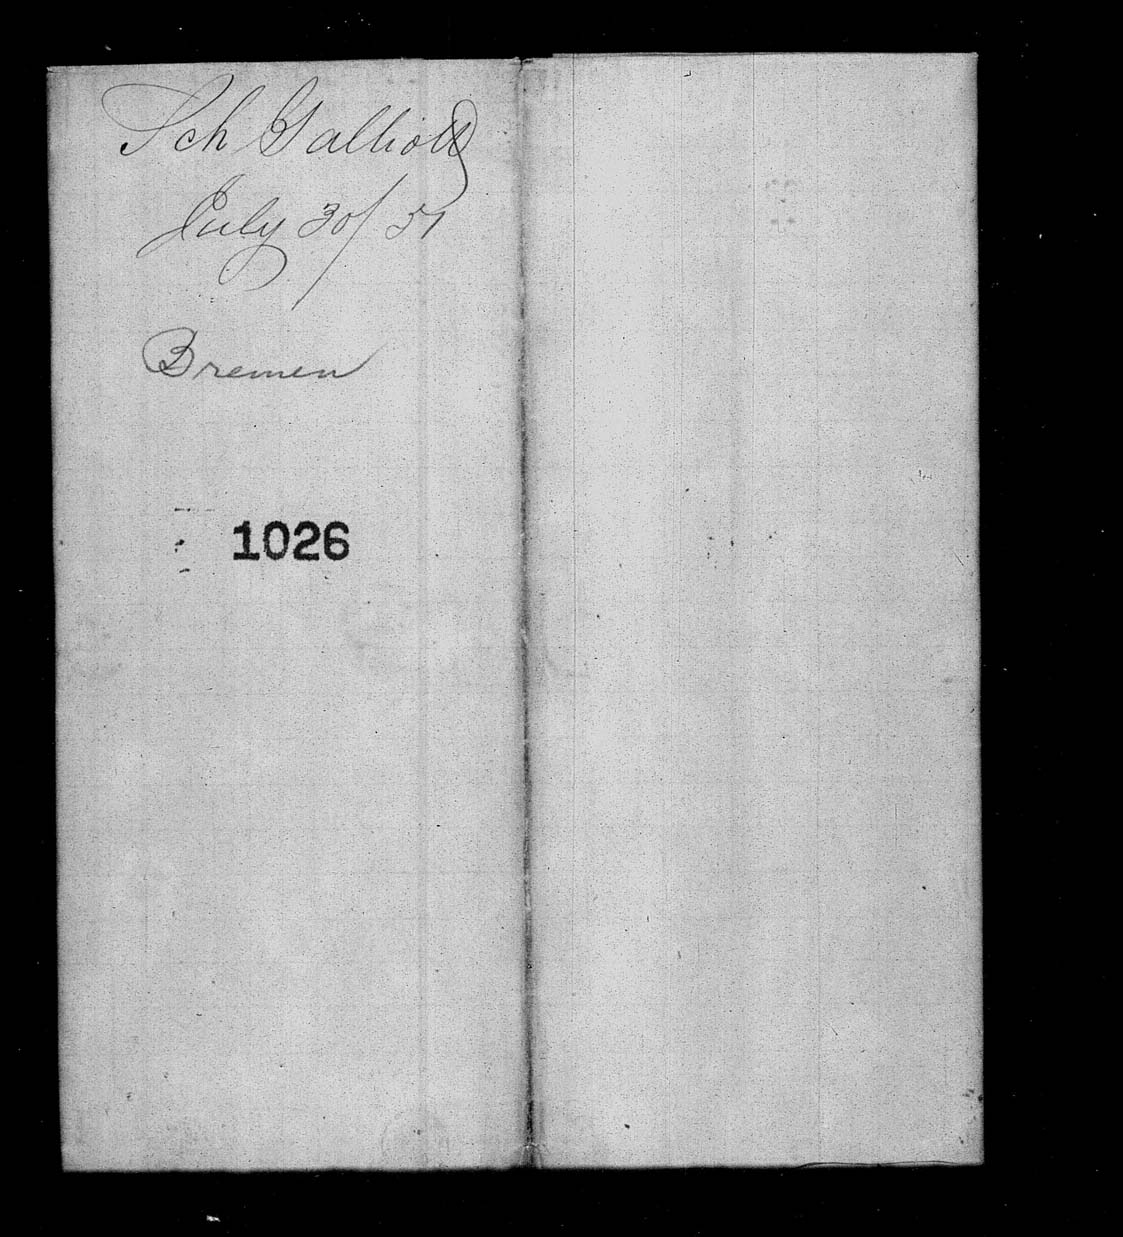 Sch Galliott
July 30/51
Bremen
1026